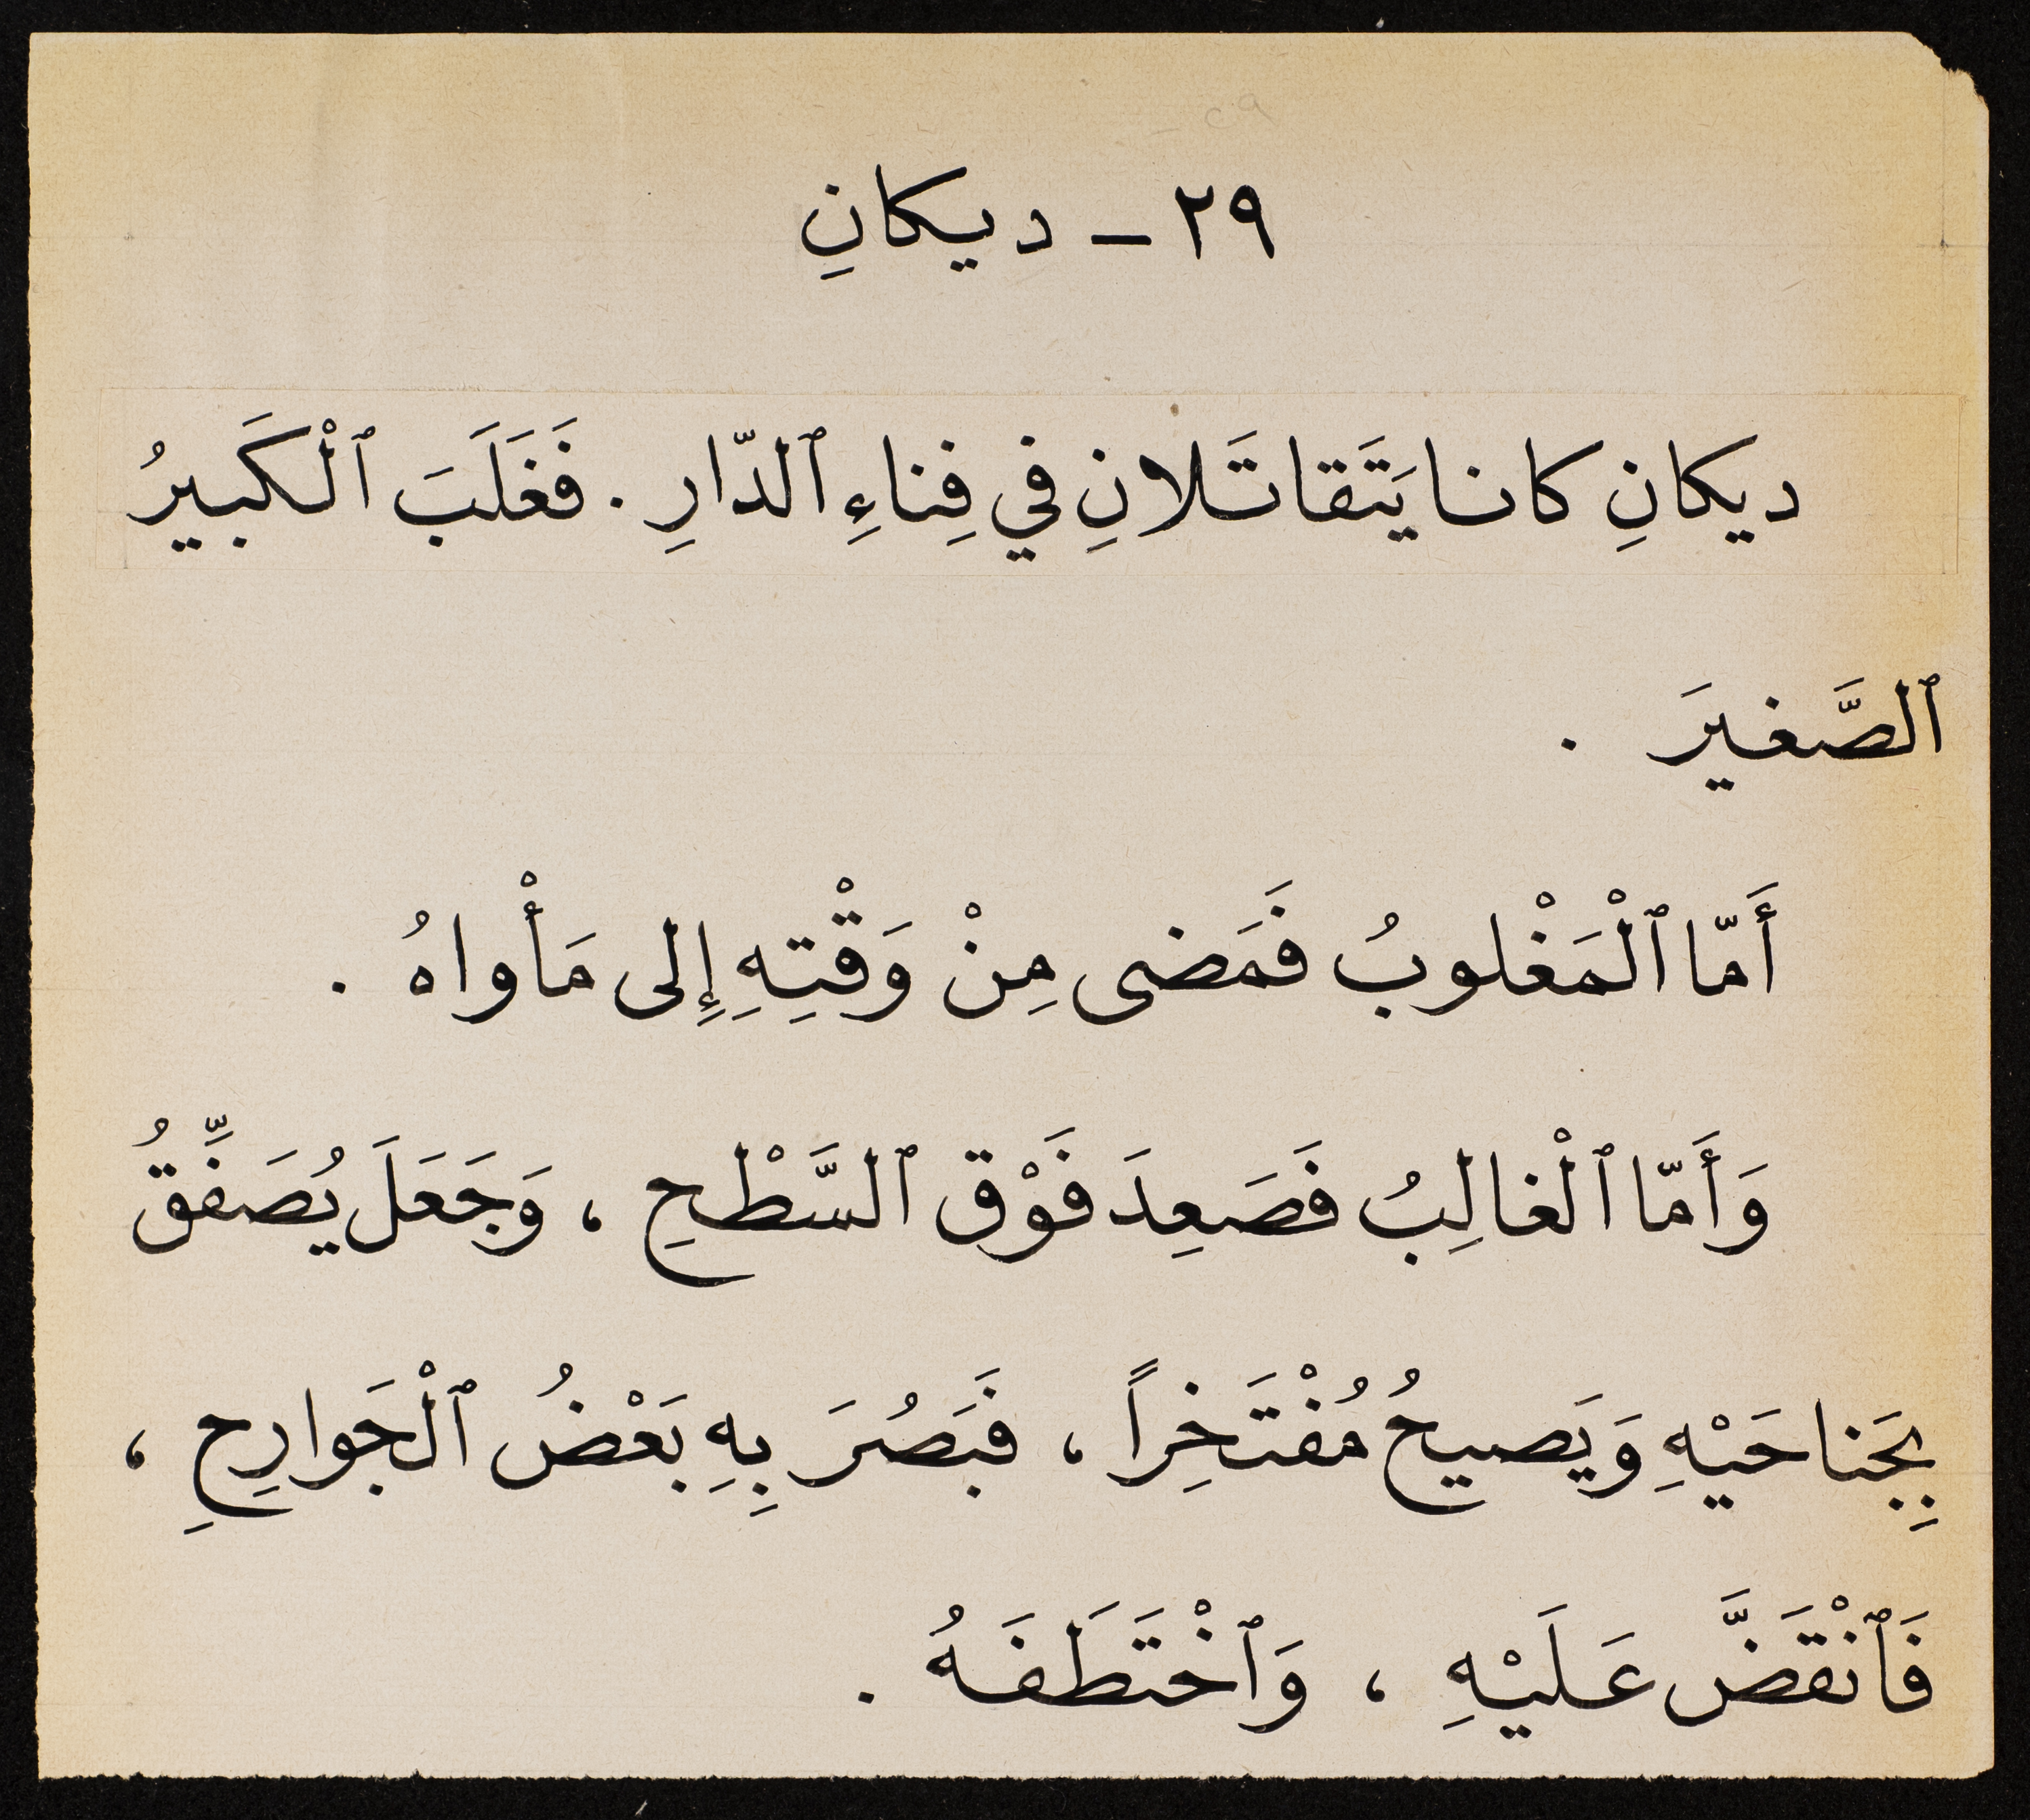 ٢٩ - ديكانِ
ديكانِ كانا يَتَقاتَلانِ في فِناءِ ٱلدّارِ . فَغَلَبَ ٱلْكَبيرُ
ٱلصَّغيرَ .
أَمّا ٱلْمَغْلوبُ فَمَضى مِنْ وَقْتِهِ إِلى مَأْواهُ .
وَأَمّا ٱلْغالِبُ فَصَعِدَ فَوْق ٱلسَّطْحِ ، وَجَعَلَ يُصَفِّقُ
بِجَناحَيْهِ وَيَصيحُ مُفْتَخِراً ، فَبَصُرَ بِهِ بَعْضُ ٱلْجَوارِحِ ،
فَٱنْقَضَّ عَلَيْهِ ، وَٱخْتَطَفَهُ .